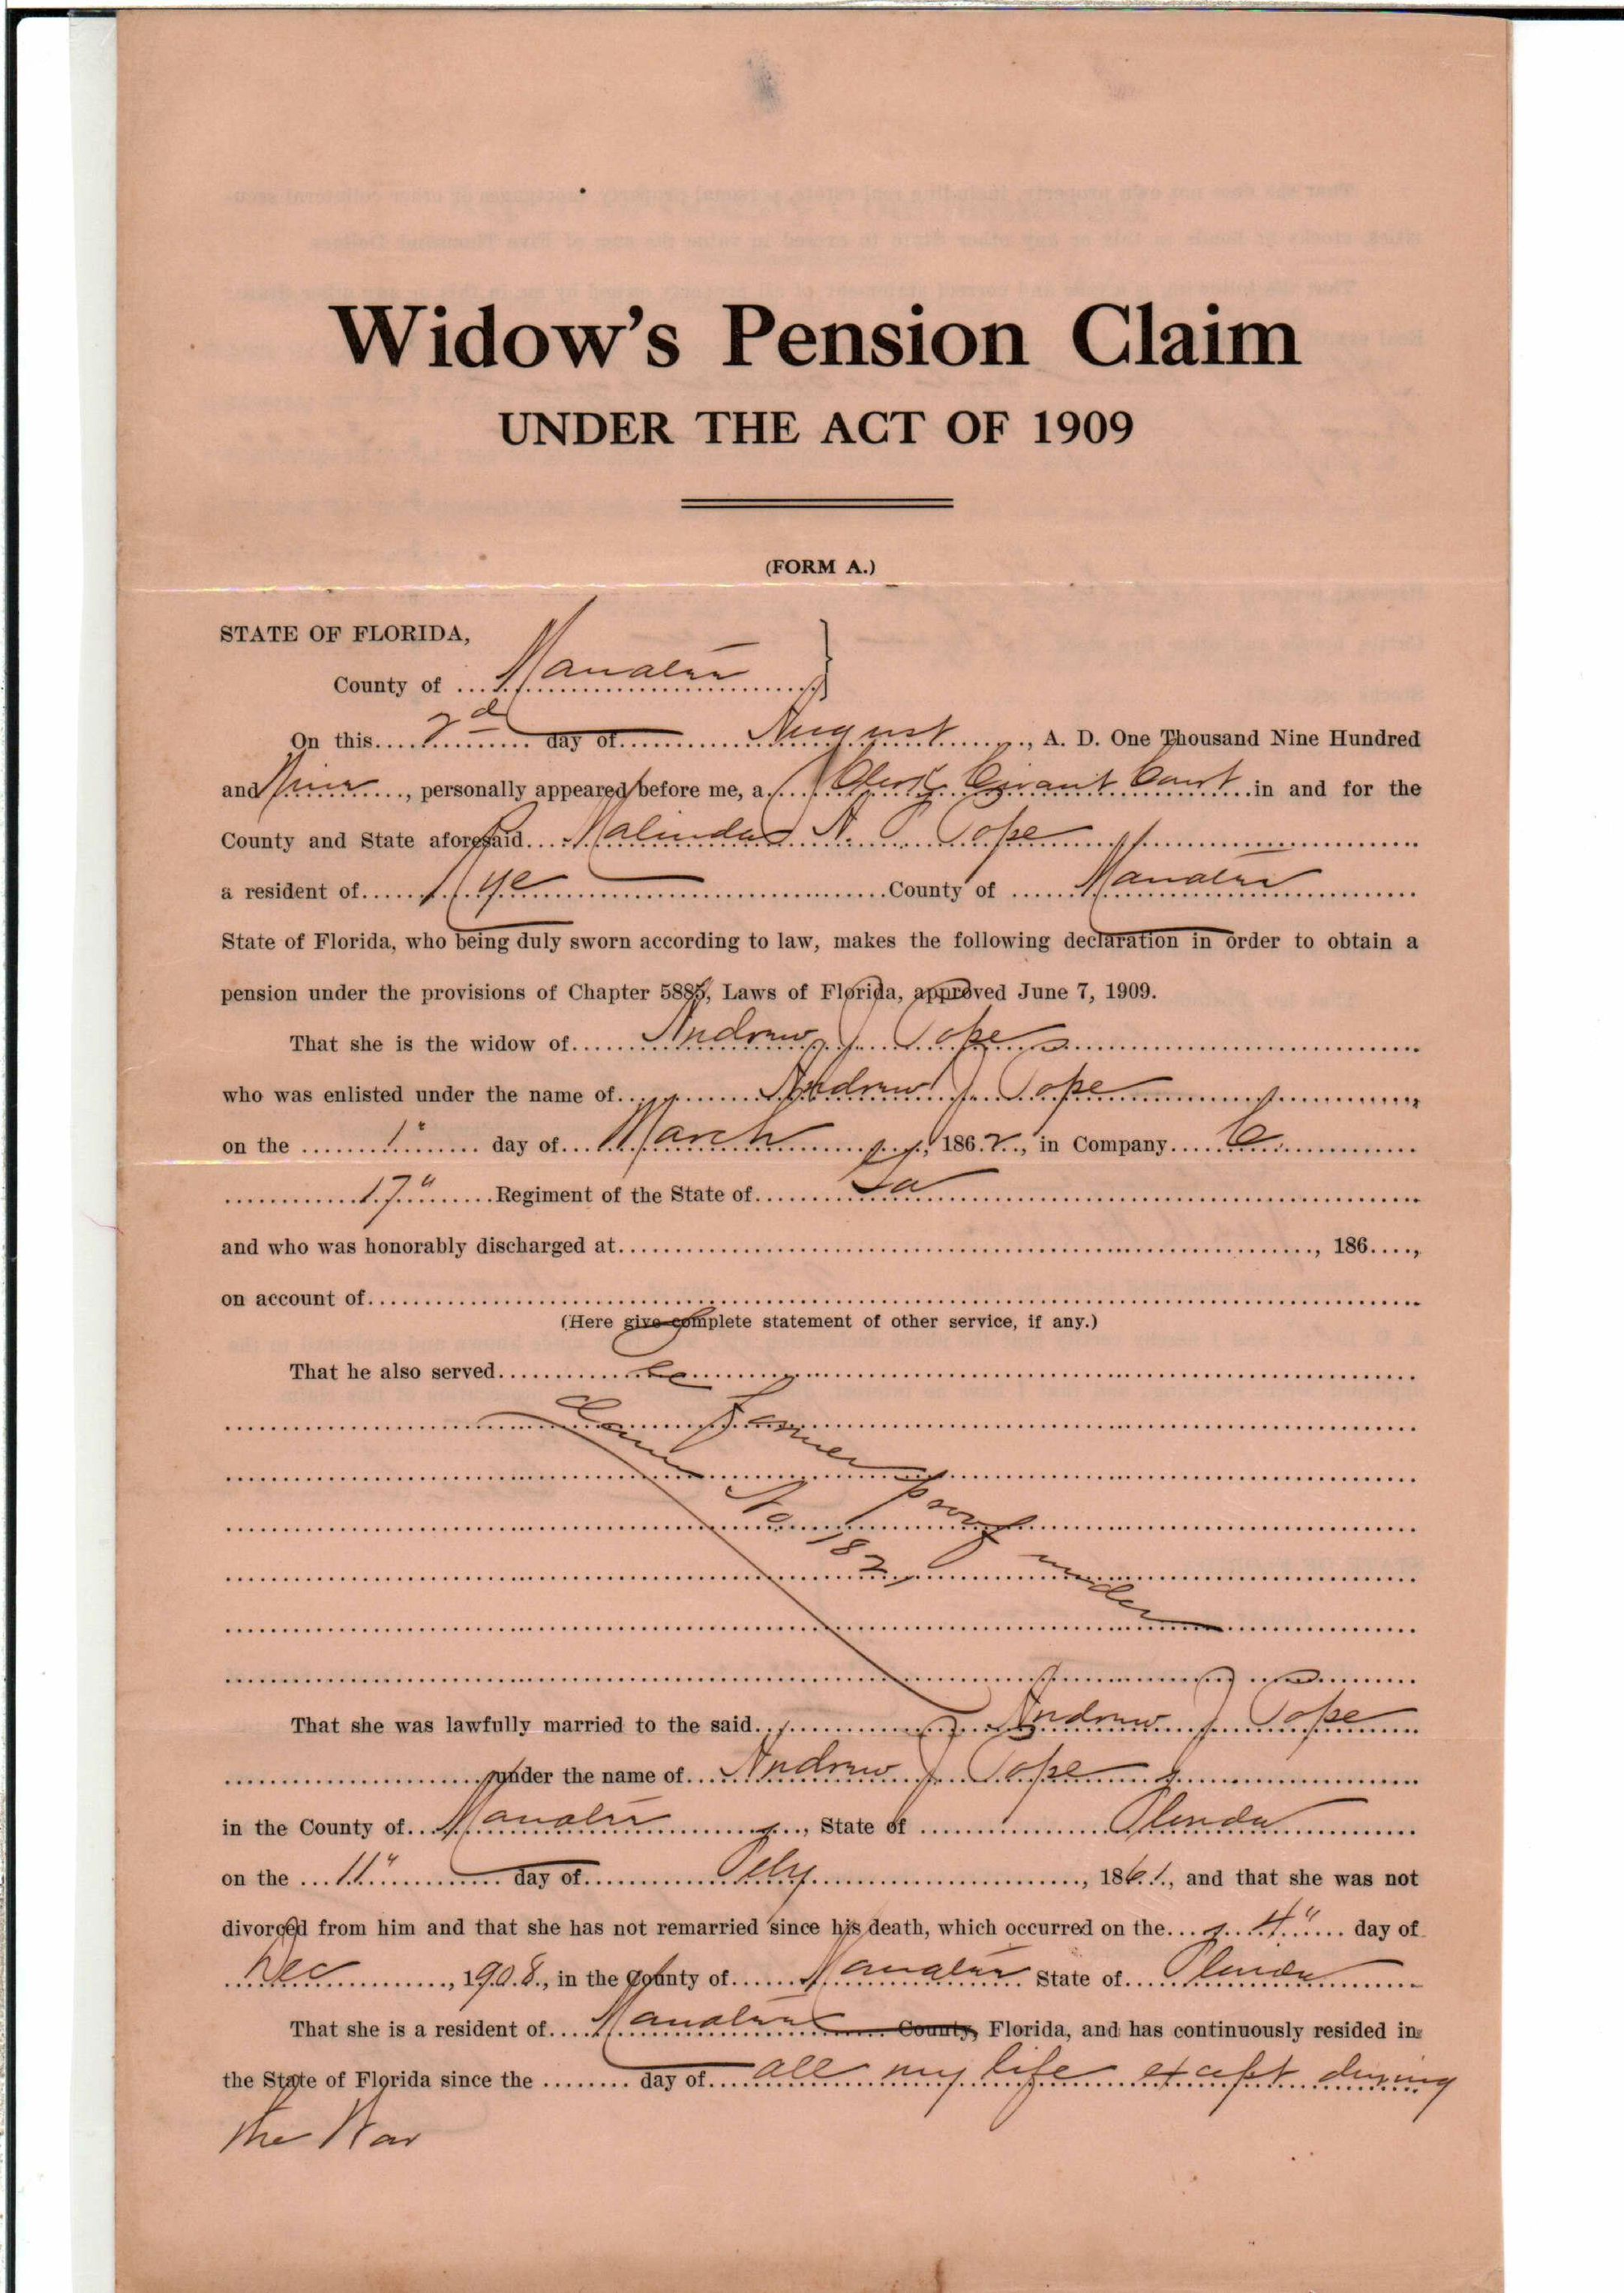 Widow's Pension Claim
UNDER THE ACT OF 1909
(FORM A.)
STATE OF FLORIDA,
County of Manatee
On this 2d day of August, A. D. One Thousand Nine Hundred
and Nine, personally appeared before me, a Clerk Circuit Court in and for the
County and State aforesaid Malinda N. Pope
a resident of County of Manatee
State of Florida, who being duly sworn according to law, makes the following declaration in order to obtain a
pension under the provisions of Chapter 5885, Laws of Florida, approved June 7, 1909.
That she is the widow of Andrew J. Pope
who was enlisted under the name of Andrew J. Pope
on the 1" day of March, 1862, in Company C.
17" Regiment of the State of
and who was honorably discharged at, 186,
on account of
(Here give complete statement of other service, if any.)
That he also served
See
former proof under
Claim No 1821
That she was lawfully married to the said Andrew J. Pope
under the name of Andrew J. Pope
in the County of Manatee, State of Florida
on the 11" day of, 1861, and that she was not
divorced from him and that she has not remarried since his death, which occurred on the 4" day of
Dec, 1908, in the County of Manatee State of Florida
That she is a resident of Manatee County, Florida, and has continuously resided in
the State of Florida since the day of all my life except during
the War